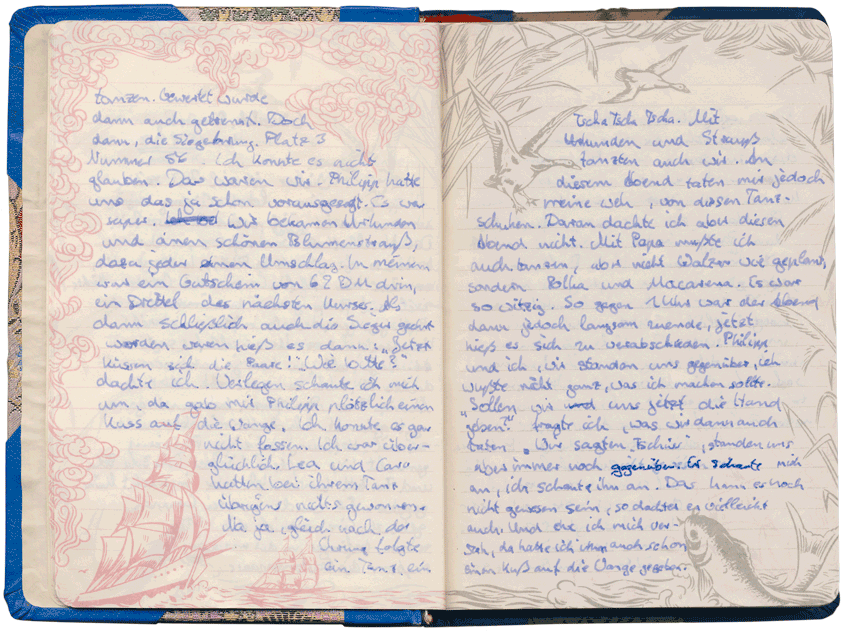 tanzen. Gewertet wurde
dann auch getrennt. Doch
dann, die Siegerehrung. Platz 3
Nummer 56. Ich konnte es nicht
glauben. Das waren wir. Philipp hatte
uns das ja schon vorausgesagt. Es war
super. Wir bekamen Urkunden
und einen schönen Blumenstrauß,
dazu jeder einen Umschlag. In meinem
war ein Gutschein von 62 DM drin,
ein Drittel des nächsten Kurses. Als
dann schließlich auch die Sieger geehrt
worden waren hieß es dann: „Jetzt
küssen sich die Paare!" „Wie bitte?"
dachte ich. Verlegen schaute ich mich
um, da gab mir Philipp plötzlich einen
Kuss auf die Wange. Ich konnte es gar
nicht fassen. Ich war über-
glücklich. Lea und Caro
hatten bei ihrem Tanz
übrigens nichts gewonnen.
die ja, gleich nach der
Ehrung folgte
ein Tanz, ein
Tscha Tscha Tscha. Mit
Urkunden und Strauß
tanzten auch wir. An
diesem Abend taten mir jedoch
meine weh, von diesen Tanz-
schuhen. Daran dachte ich aber diesen
Abend nicht. Mit Papa mußte ich
auch tanzen, aber nicht Walzer wie geplant,
sondern Polka und Macarena. Es war
so witzig. So gegen 1 Uhr war der Abend
dann jedoch langsam zuende, jetzt
hieß es sich zu verabschieden. Philipp
und ich, wir standen uns gegenüber, ich
wußte nicht ganz, was ich machen sollte.
„Sollen wir uns jetzt die Hand
geben?" fragte ich, was wir dann auch
taten. Wir sagten „Tschüs", standen uns
aber immer noch gegenüber. Er schaute mich
an, ich schaute ihn an. Das kann es noch
nicht gewesen sein, so dachte er vielleicht
auch. Und ehe ich mich ver-
sah, da hatte ich ihm auch schon
einen Kuß auf die Wange gegeben.